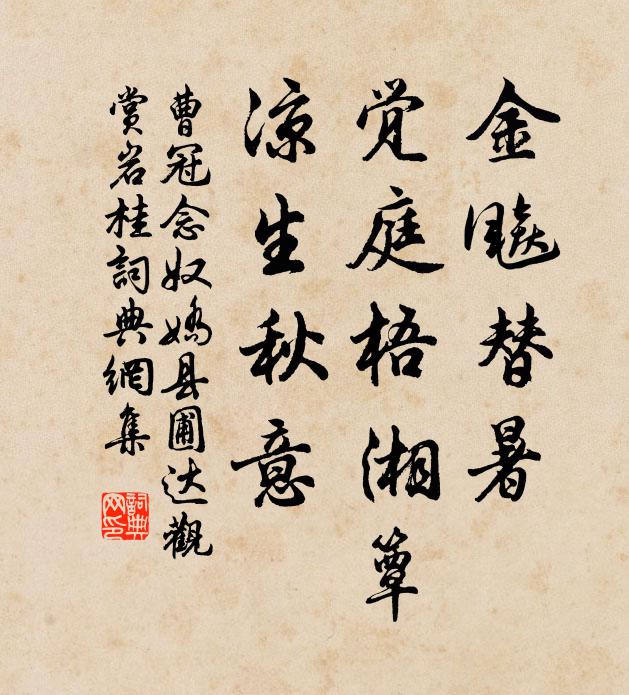 金飈替暑
觉庭梧湘簟
凉生秋意
曹冠念奴娇县圃达觀
赏岩桂詞典網集
詞典网印